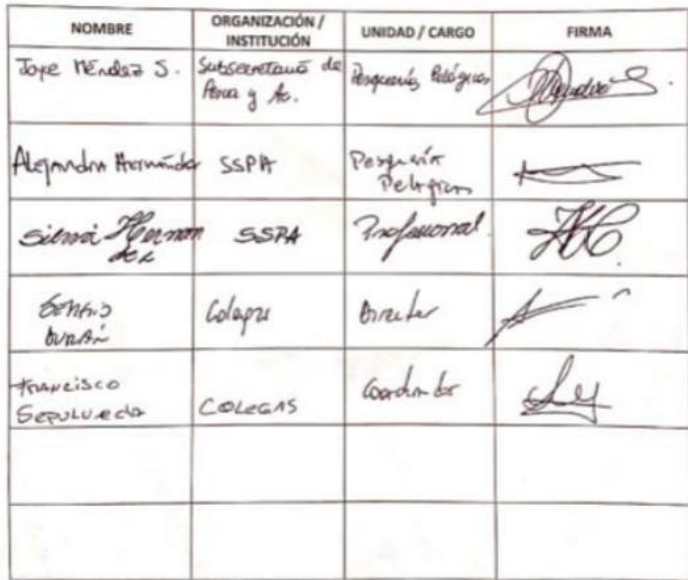 NOMBRE
ORGANIZACIÓN /
INSTITUCIÓN
UNIDAD / CARGO
FIRMA
Jope Méndez S.
Subsecretaría de
Pesca y Ac.
Pesquerías Pelágicas
Alejandra Hernández
SSPA
Pesquerías
Pelágicas
Silvia Hernan
dez
SSPA
Profesional
SERGIO
DURÁN
Director
Francisco
Sepulveda
COLEGAS
Coordinador